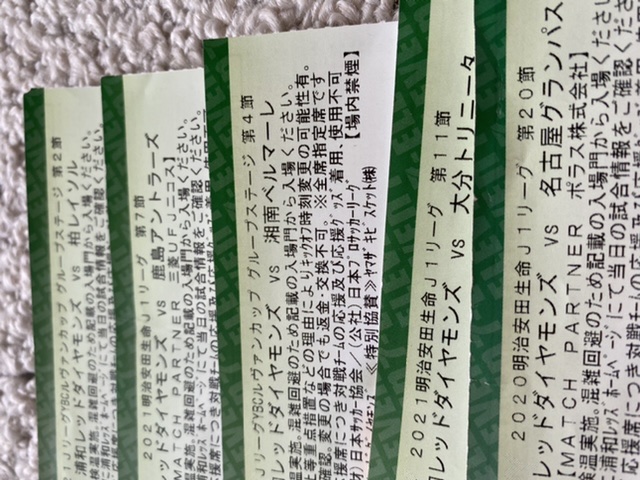 1JリーグYBCルヴァンカップ グループステージ 第2節
浦和レッドダイヤモンズ VS 柏レイソル
検温実施。混雑回避のため記載の入場門から入場ください。
に浦和レッズホームページにて当日の試合情報をご確認ください。
2021明治安田生命J1リーグ 第7節
レッドダイヤモンズ VS 鹿島アントラーズ
MATCH PARTNER 三菱UFJニコス】
検温実施。混雑回避のため記載の入場門から入場ください。
に浦和レッズホームページにて当日の試合情報をご確認ください。
応援席につき対戦チームの応援及び応援グッズ着用、使用不可
JリーグYBCルヴァンカップ グループステージ 第4節
レッドダイヤモンズ VS 湘南ベルマーレ
検温実施。混雑回避のため記載の入場門から入場ください。
重点措置などの理由によりキックオフ時刻変更の可能性有。
変更の場合でも返金・交換不可。 ※全席指定席です
応援席につき対戦チームの応援及び応援グッズ着用、使用不可
財)日本サッカー協会/(公社)日本プロサッカーリーグ 【場内禁煙】
≪特別協賛≫ヤマザキビスケット(株)
2021明治安田生命J1リーグ 第11節
レッドダイヤモンズ VS 大分トリニータ
2020明治安田生命J1リーグ 第20節
レッドダイヤモンズ VS 名古屋グランパス
【MATCH PARTNER ポラス株式会社】
検温実施。混雑回避のため記載の入場門から入場ください
に浦和レッズホームページにて当日の試合情報をご確認くださ